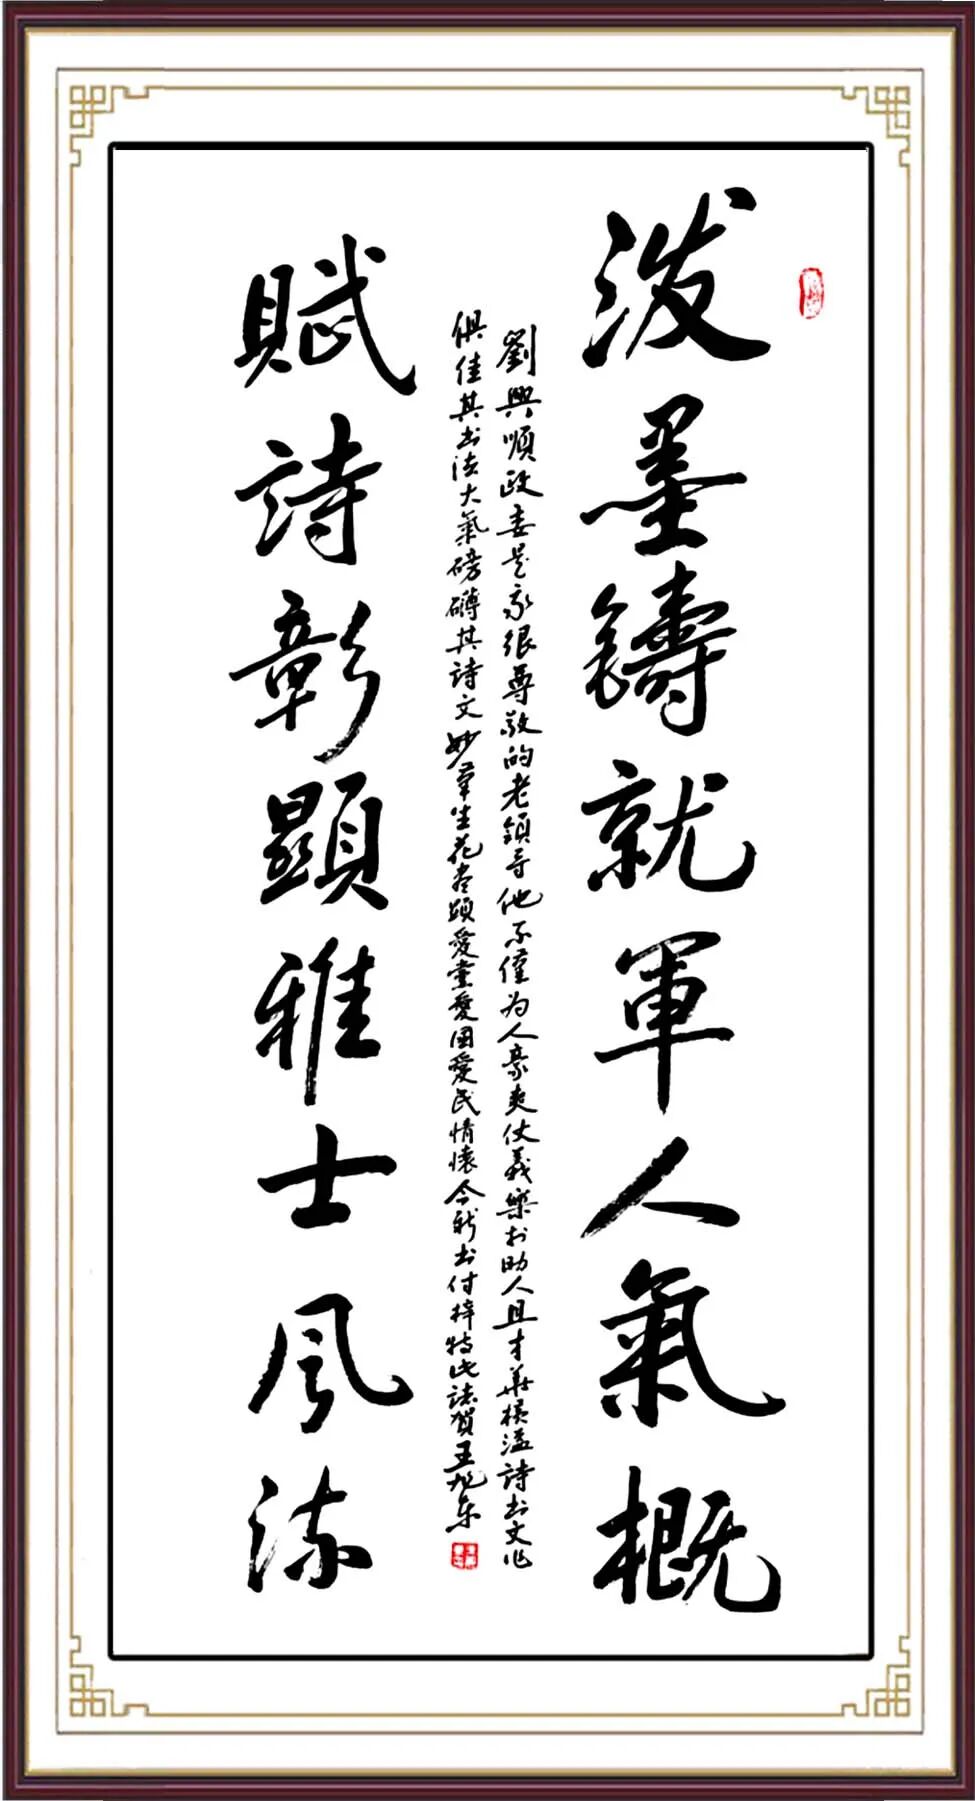 泼墨鑄就軍人氣概
劉興順政委是我很尊敬的老領导他不僅为人豪爽仗義樂於助人且才華橫溢詩书文化
俱佳其书法大氣磅礴其詩文妙筆生花盡顕愛党愛国愛民情懷今新书付梓特此誌賀王旭东
賦詩彰顯雅士风流